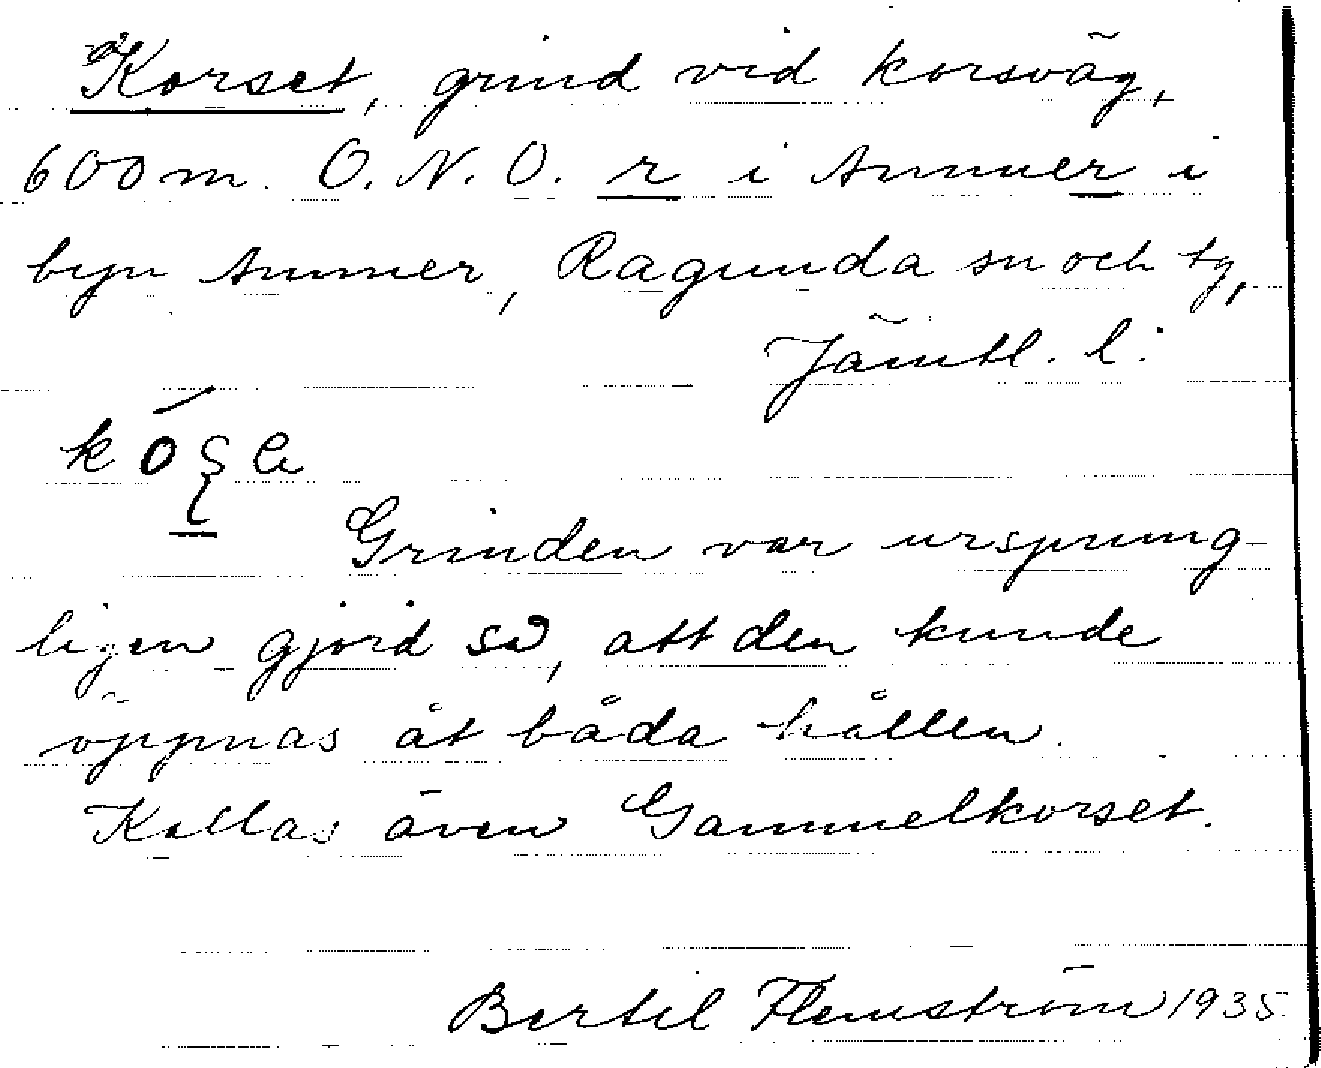 Korset, grind vid korsväg,
600 m. O.N.O. r i Ammer i
byn Ammer, Ragunda sn och tg,
Jämtl. l.
Grinden var ursprung-
ligen gjord så, att den kunde
öppnas åt båda hållen.
Kallas även Gammelkorset.
Bertil Flemström 1935